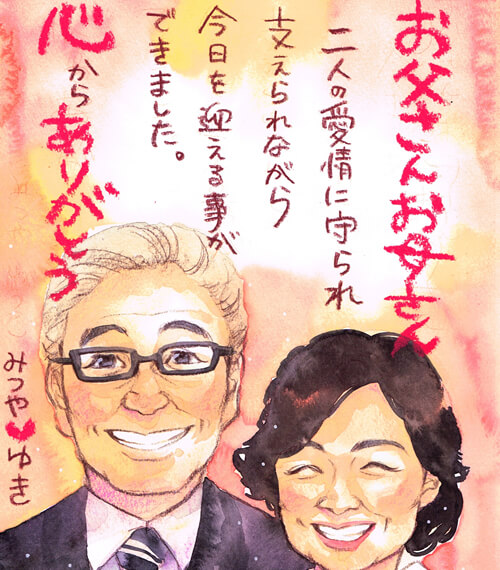 お父さんお母さん
二人の愛情に守られ
支えられながら
今日を迎える事が
できました。
心からありがとう
みつや♥ゆき